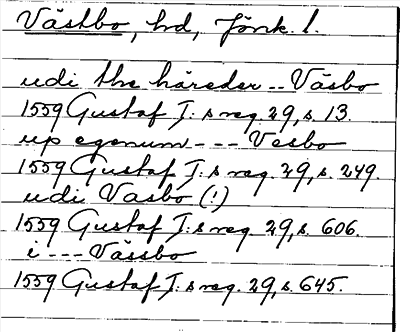 Västbo, hd, Jönk. l.
udi the häreder -- Väsbo
1559 Gustaf I:s reg. 29, s. 13.
up egenum --- Vesbo
1559 Gustaf I:s reg. 29, s. 249.
udi Vasbo (!)
1559 Gustaf I:s reg. 29, s. 606.
i --- Vässbo
1559 Gustaf I:s reg. 29, s. 645.